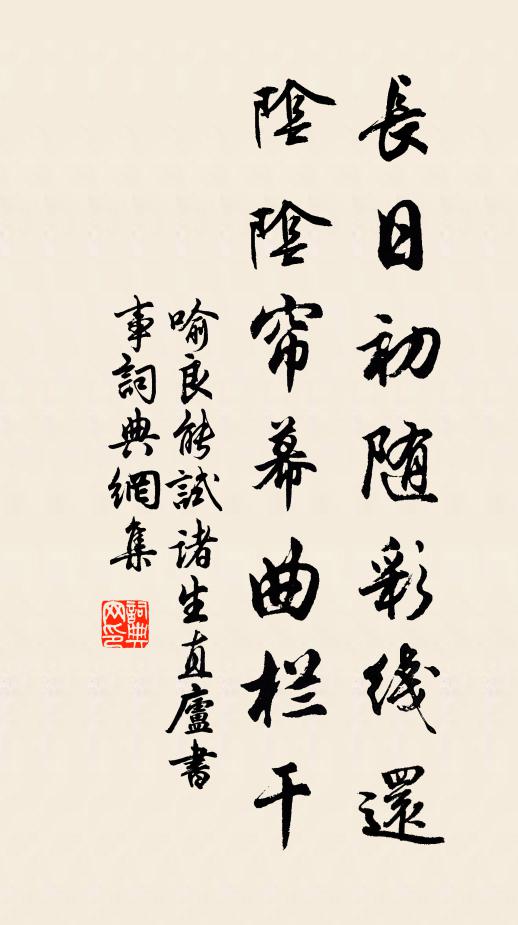 長日初随彩线還
陰陰帘幕曲栏干
喻良能試诸生直廬書
事詞典網集
詞典网印